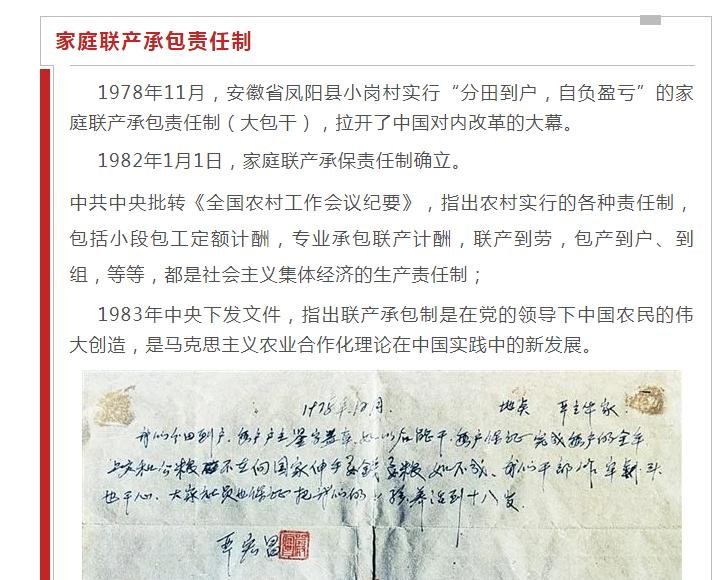 家庭联产承包责任制
1978年11月，安徽省凤阳县小岗村实行“分田到户，自负盈亏”的家
庭联产承包责任制（大包干），拉开了中国对内改革的大幕。
1982年1月1日，家庭联产承保责任制确立。
中共中央批转《全国农村工作会议纪要》，指出农村实行的各种责任制，
包括小段包工定额计酬，专业承包联产计酬，联产到劳，包产到户、到
组，等等，都是社会主义集体经济的生产责任制；
1983年中央下发文件，指出联产承包制是在党的领导下中国农民的伟
大创造，是马克思主义农业合作化理论在中国实践中的新发展。
1978年12月. 地点 严立华家.
我们分田到户. 每户户主签字盖章. 如以后能干. 每户保证完成每户的全年
上交和公粮 不在向国家伸手要钱要粮 如不成. 我们干部作牢
也干心. 大家社员也保证把我们的小孩养活到十八岁.
严宏昌